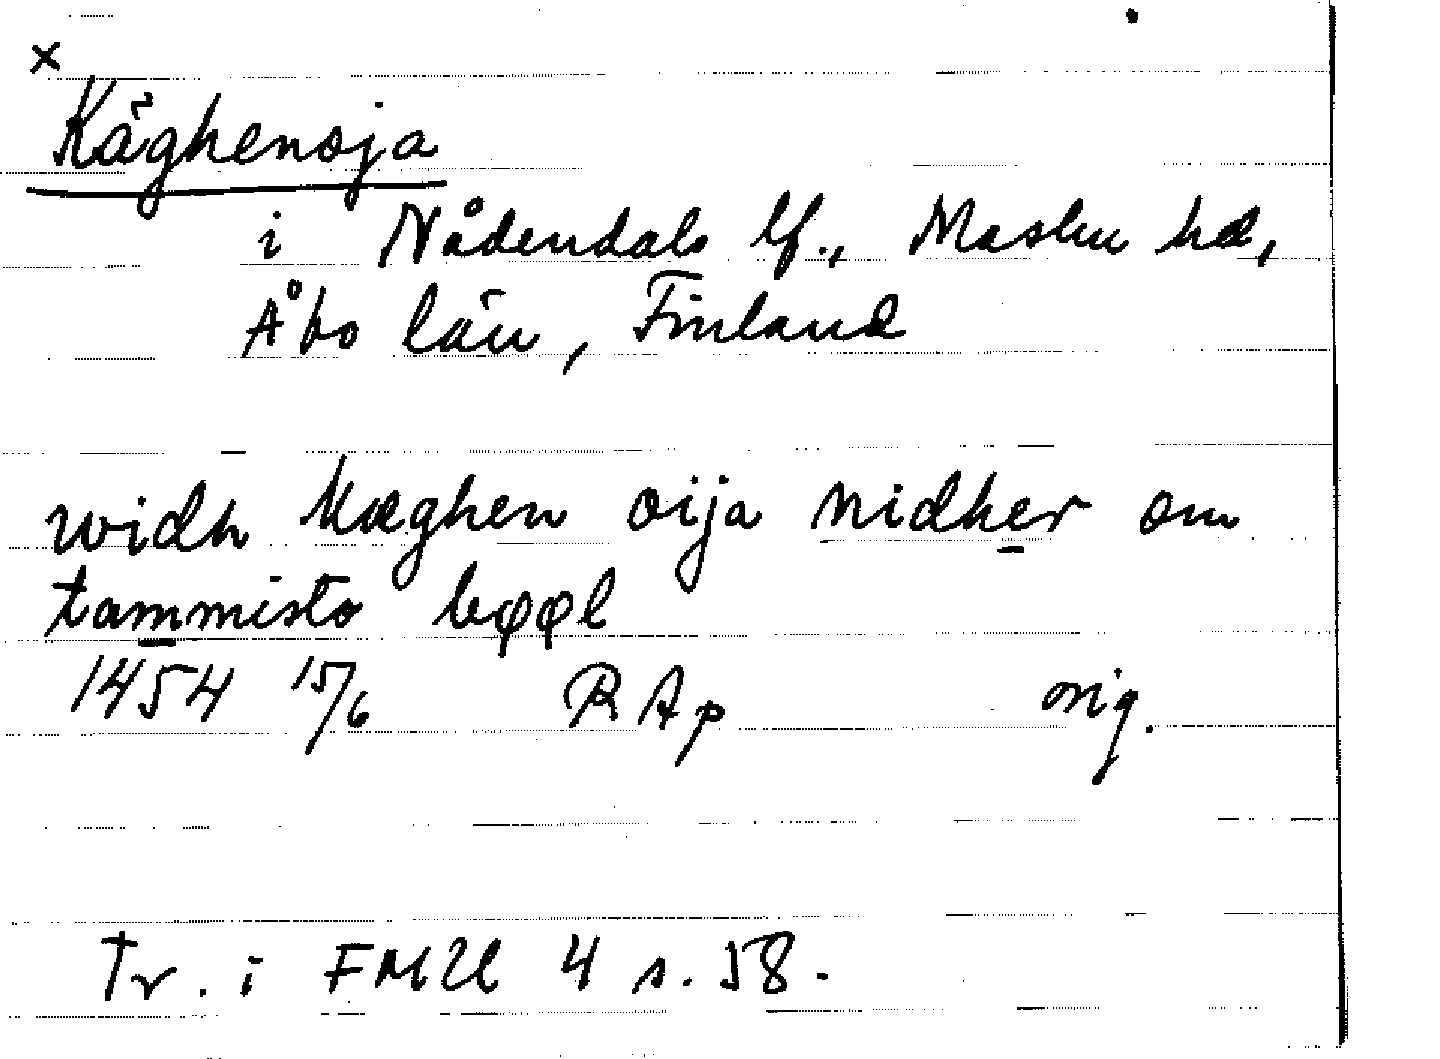 x
Käghenoja
i Nådendals lf., Masku hd,
Åbo län, Finland
widh kæghen oija nidher om
tammisto bøøl
1454 15/6 RAp orig.
Tr. i FMU 4 s. 58.